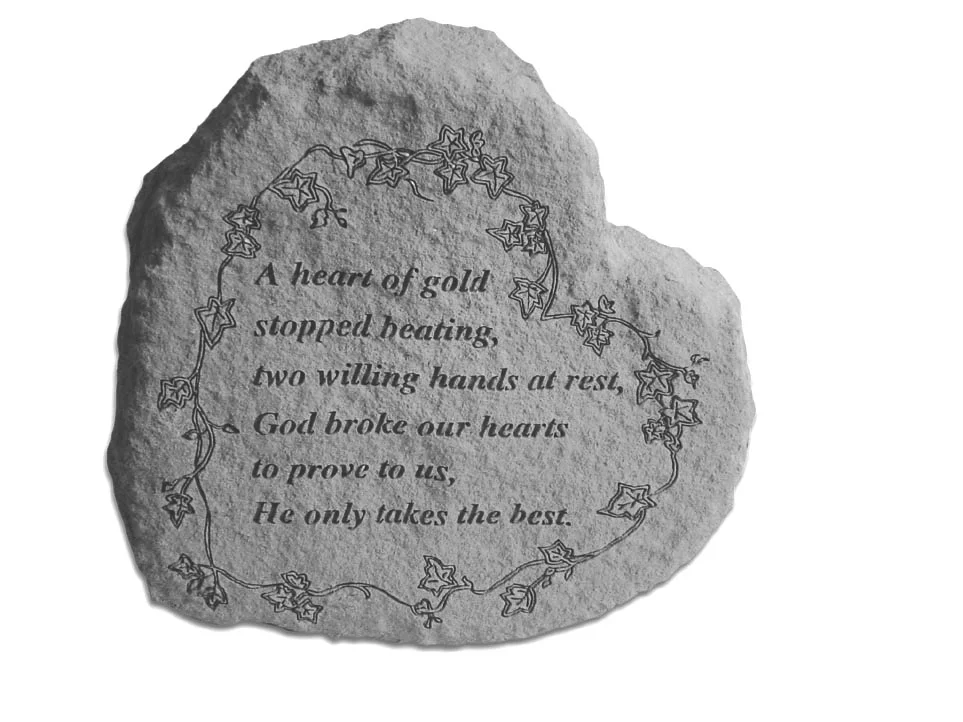 A heart of gold
stopped beating,
two willing hands at rest,
God broke our hearts
to prove to us,
He only takes the best.